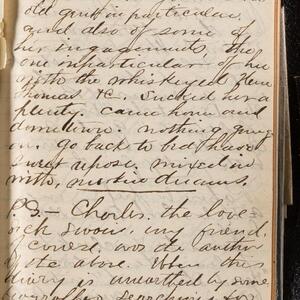 old guilt in particular
and also of some of
her engagements, the
one in particular of her
with the whiskyed Glen
Thomas &c. Sucked her a
plenty. Came home and
done town. nothing going
on. go back to bed, have
sweet repose, mixed in
with, dreams.
P.S— Charles, the love
sick swois, my friend,
of course, was the author
of the above. When this
diary is unearthed by some
searching